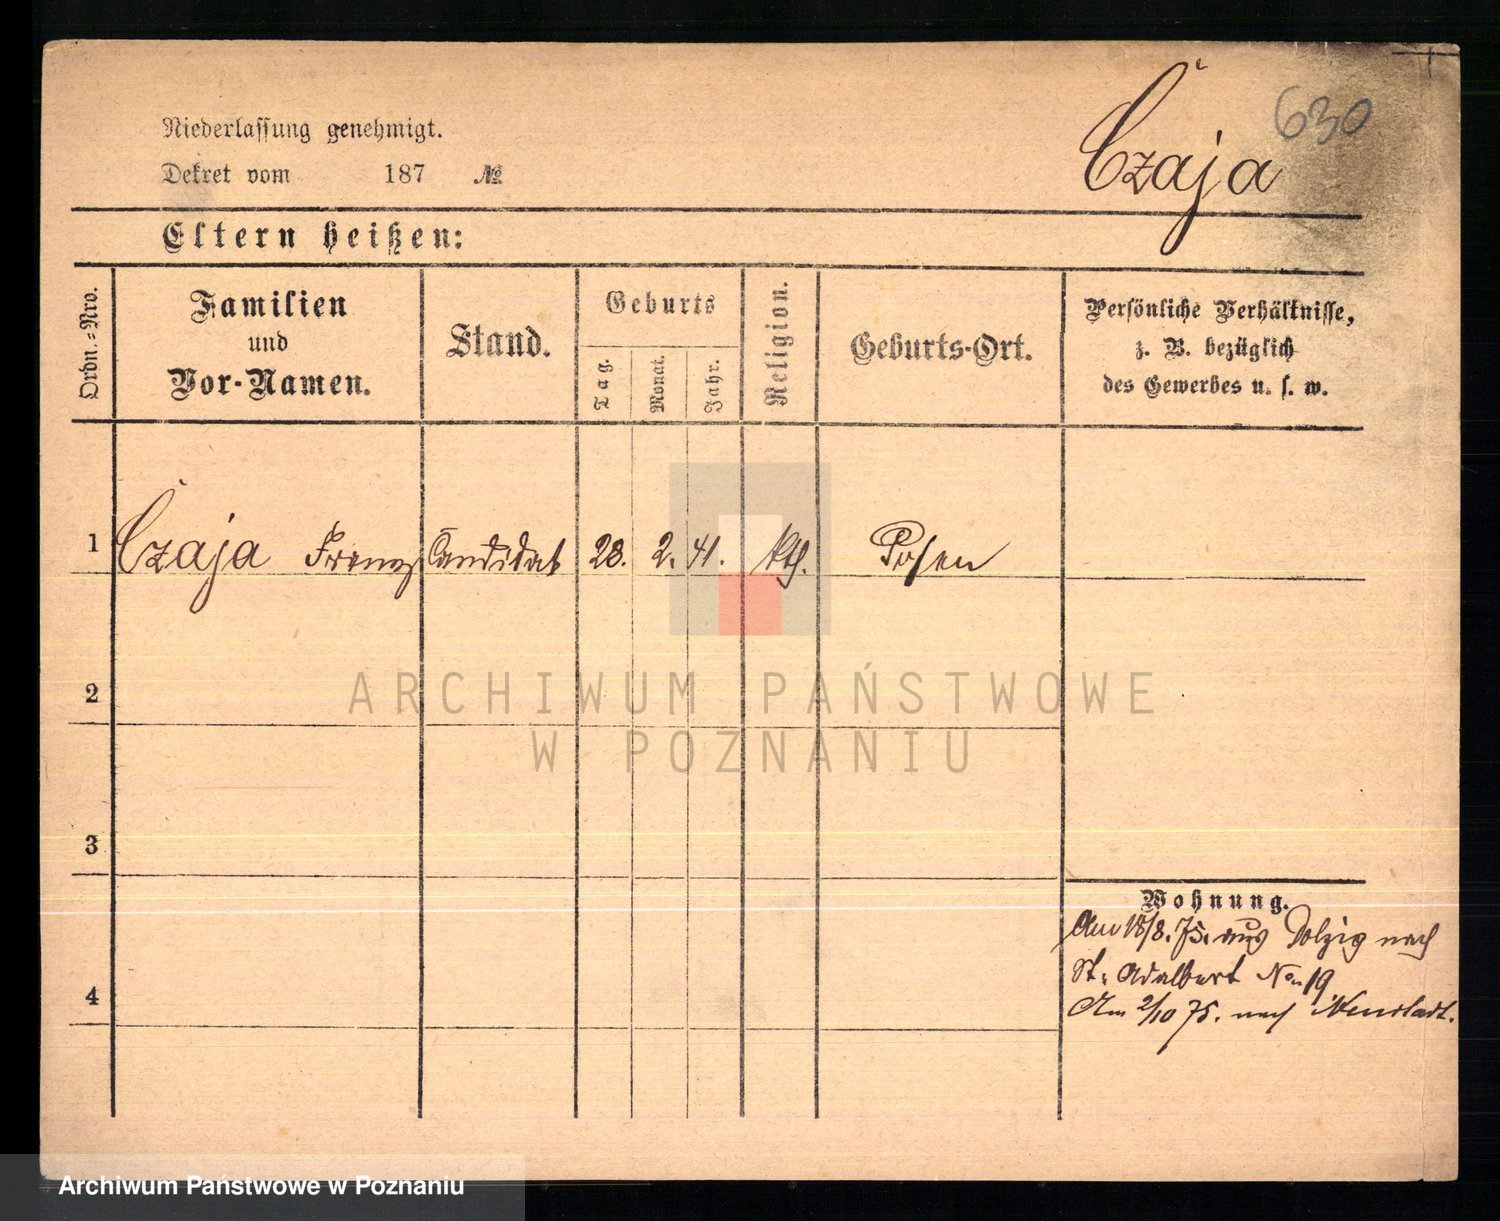 630
Czaja
Niederlassung genehmigt.
Dekret vom 187 №
Eltern heißen:
Ordn.=Nro.
Familien
und
Vor-Namen.
Stand.
Geburts
Tag.
Monat.
Jahr.
Religion.
Geburts-Ort.
Persönliche Verhältnisse,
z. B. bezüglich
des Gewerbes u. s. w.
1 Czaja Franz Candidat 28. 2. 41. kth. Posen
2
ARCHIWUM PAŃSTWOWE
W POZNANIU
3
Wohnung.
Am 18/8. 75. aus Dolzig nach
St. Adalbert No 19
4
Am 2/10 75. nach Neustadt.
Archiwum Państwowe w Poznaniu